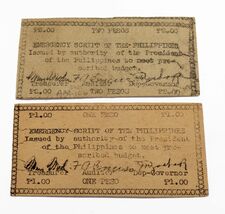 P2.00 TWO PESOS P2.00
EMERGENCY SCRIPT OF THE PHILIPPINES
Issued by authority of the President
of the Philippines to meet pre-
scribed budget.
Treasurer Auditor Dep-Governor
P2.00 TWO PESO P2.00
P1.00 ONE PESO P1.00
EMERGENCY SCRIPT OF THE PHILIPPINES
Issued by authority of the President
of the Philippines to meet pre-
scribed budget.
Treasurer Auditor Dep-Governor
P1.00 ONE PESO P1.00